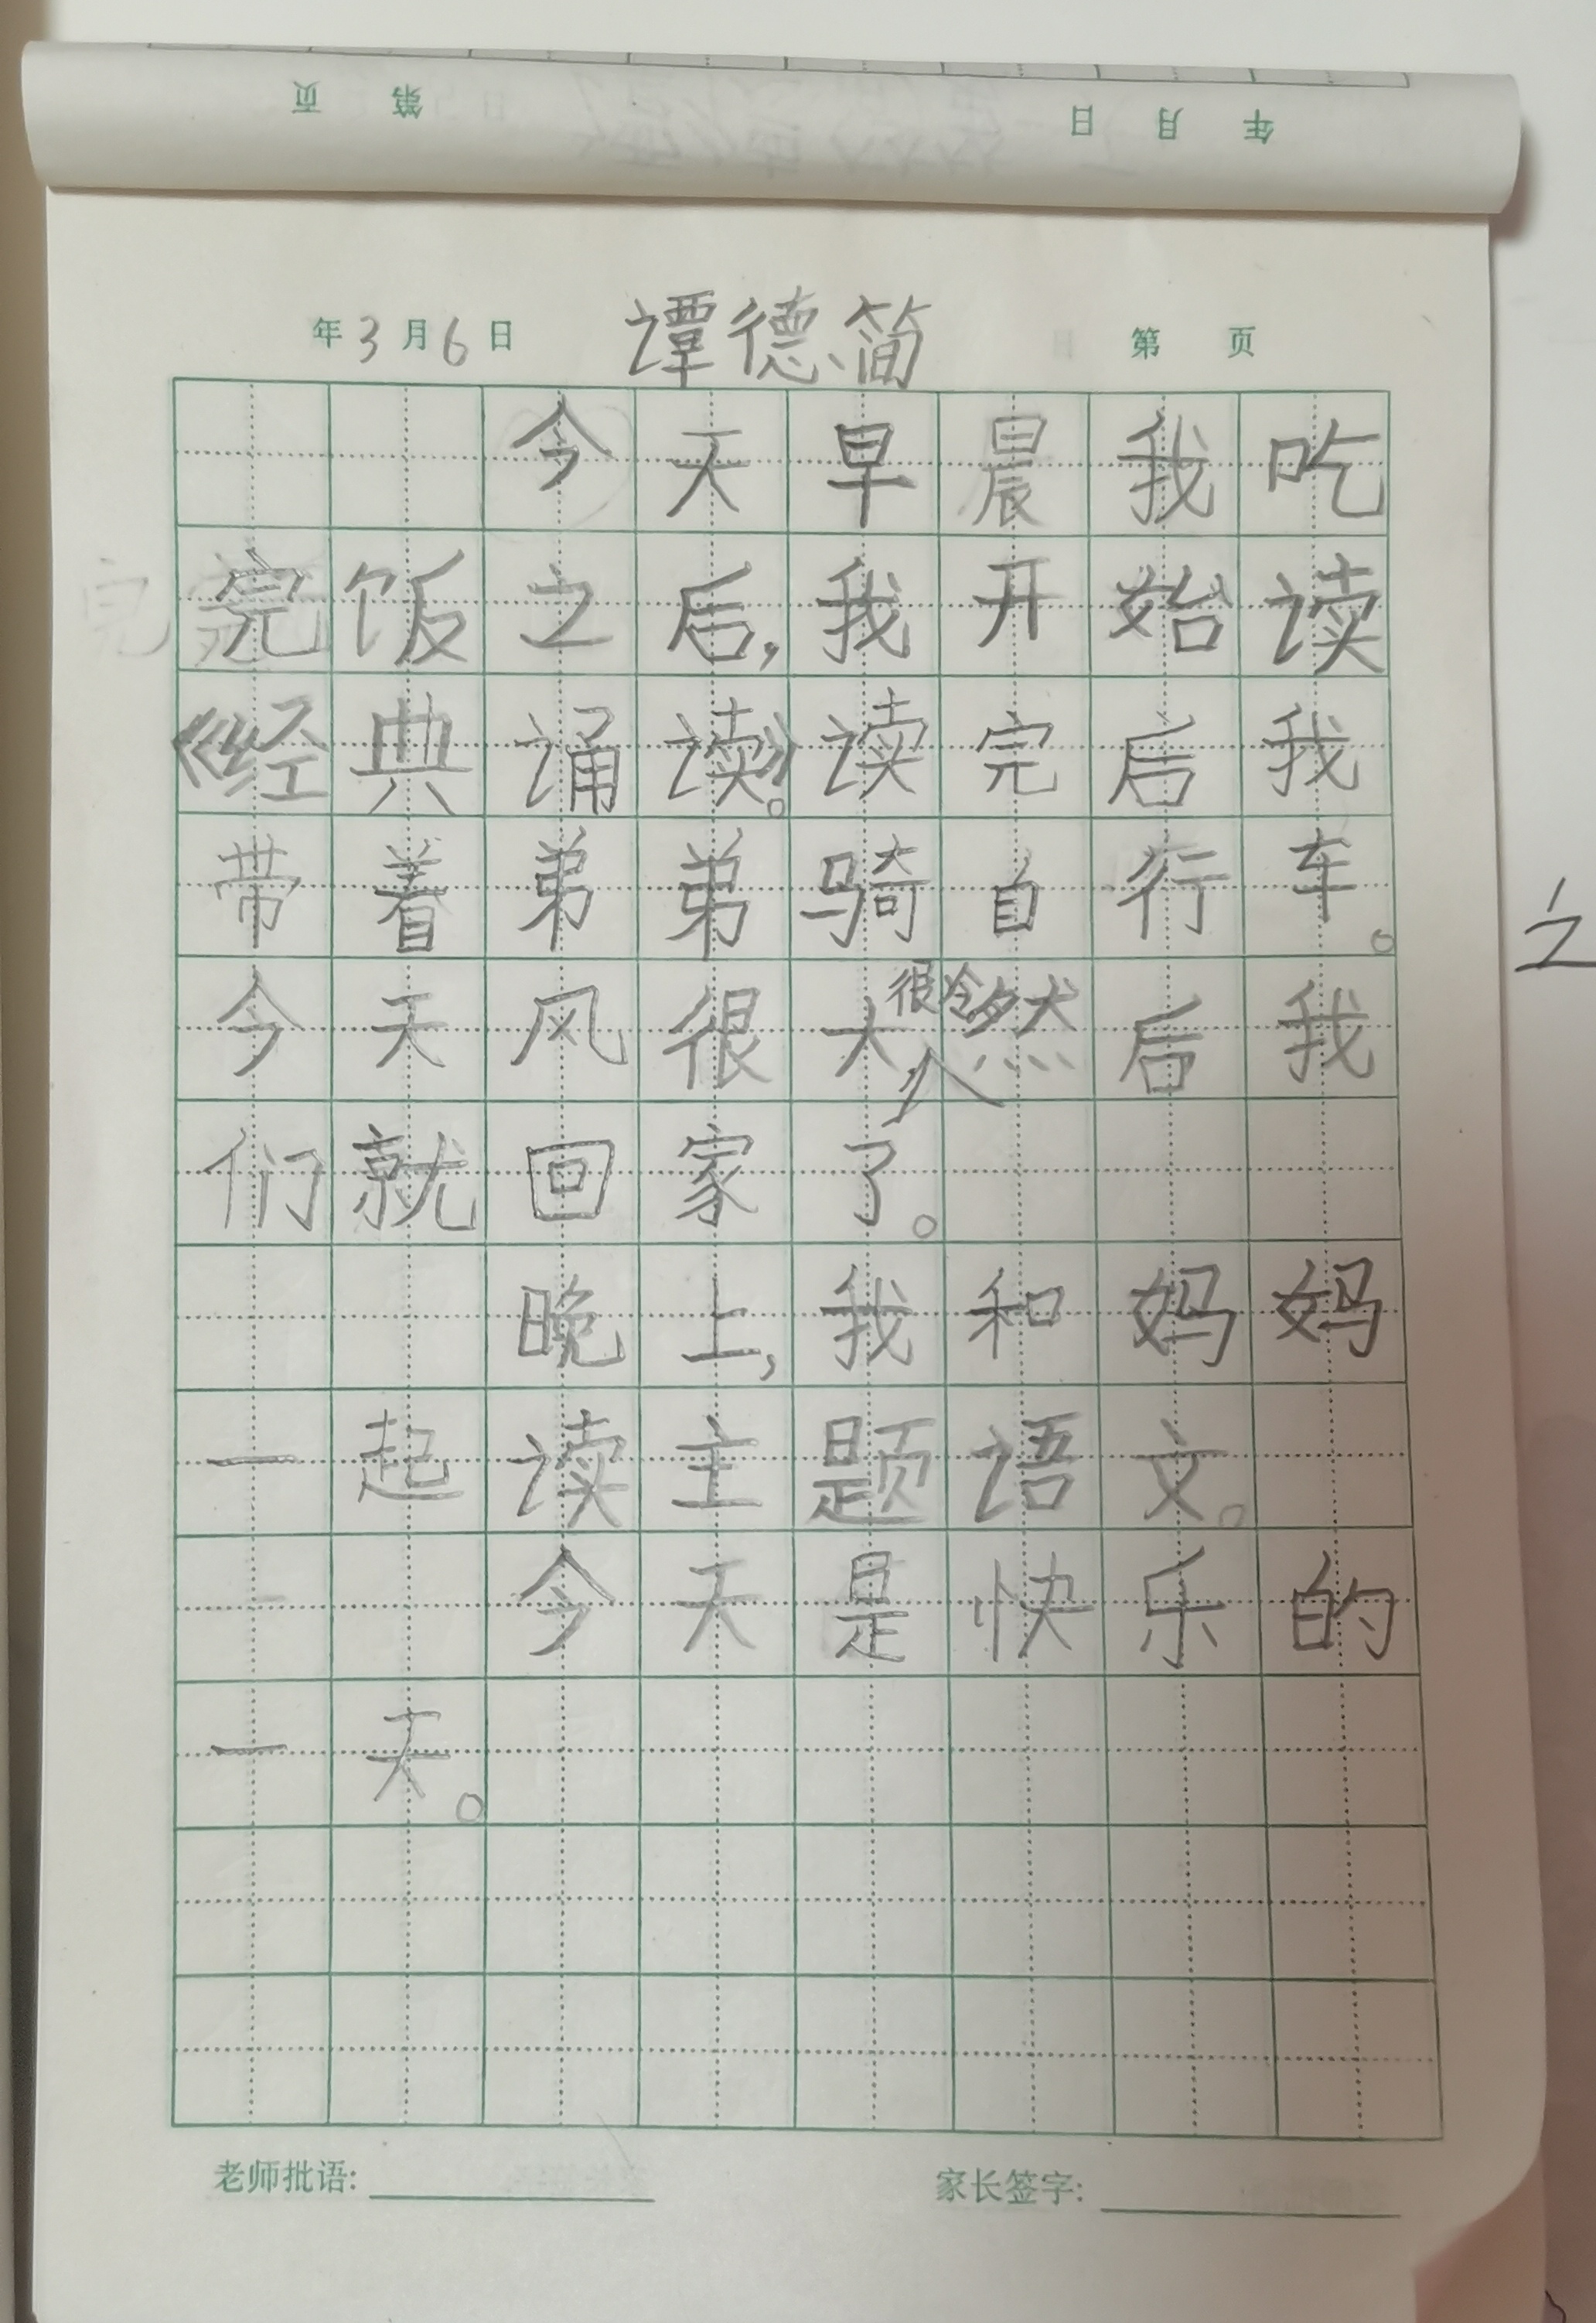 页 第 日 月 年
年3月6日 谭德简 第 页
今天早晨我吃
完饭之后,我开始读
《经典诵读》。读完后我
带着弟弟骑自行车。
今天风很大很冷然后我
们就回家了。
晚上,我和妈妈
一起读主题语文。
今天是快乐的
一天。
老师批语: 家长签字:
之